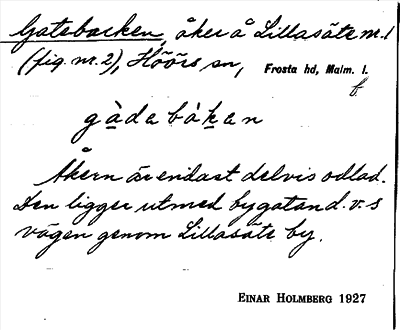 Gatebacken, åker å Lillasäte nr. 1
(fig. nr. 2), Höörs sn, Frosta hd, Malm. l.
f.
gàdabákan
Åkern är endast delvis odlad.
Den ligger utmed bygatan d.v.s
vägen genom Lillasäte by.
EINAR HOLMBERG 1927